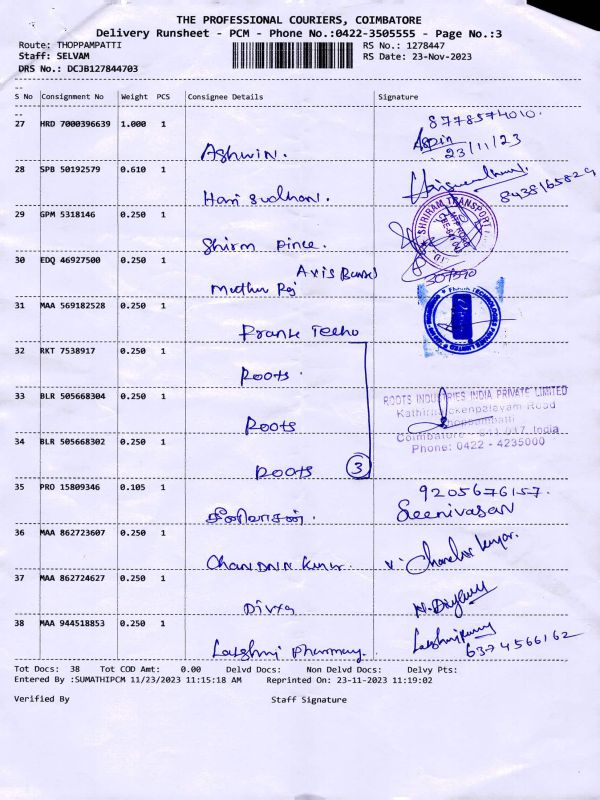 THE PROFESSIONAL COURIERS, COIMBATORE
Delivery Runsheet - PCM - Phone No.:0422-3505555 - Page No.:3
Route: THOPPAMPATTI RS No.: 1278447
Staff: SELVAM RS Date: 23-Nov-2023
DRS No.: DCJB127844703
S No Consignment No Weight PCS Consignee Details Signature
8778574010.
27 HRD 7000396639 1.000 1
23/11/23
Ashwin.
28 SPB 50192579 0.610 1
Hari Sudhan.
29 GPM 5318146 0.250 1
SHRIRAM TRANSPORT
30 EDQ 46927500 0.250 1
Axis Bank
Muthu Raj
31 MAA 569182528 0.250 1
32 RKT 7538917 0.250 1
Roots.
33 BLR 505668304 0.250 1
ROOTS INDUSTRIES INDIA PRIVATE LIMITED
Road
Roots
Thoppampatti
34 BLR 505668302 0.250 1
Coimbatore - 641 017, India
Phone: 0422 - 4235000
Roots 3
35 PRO 15809346 0.105 1
9205676157.
சீனிவாசன். Seenivasan
36 MAA 862723607 0.250 1
37 MAA 862724627 0.250 1
Divya
38 MAA 944518853 0.250 1
Lakshmi Pharmacy. 6374566162
Tot Docs: 38 Tot COD Amt: 0.00 Delvd Docs: Non Delvd Docs: Delvy Pts:
Entered By :SUMATHIPCM 11/23/2023 11:15:18 AM Reprinted On: 23-11-2023 11:19:02
Verified By Staff Signature